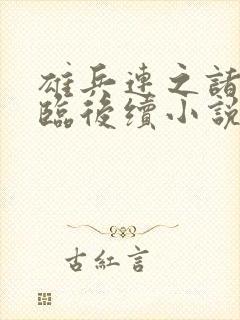 雄兵連之諸
臨後續小說
古紅言